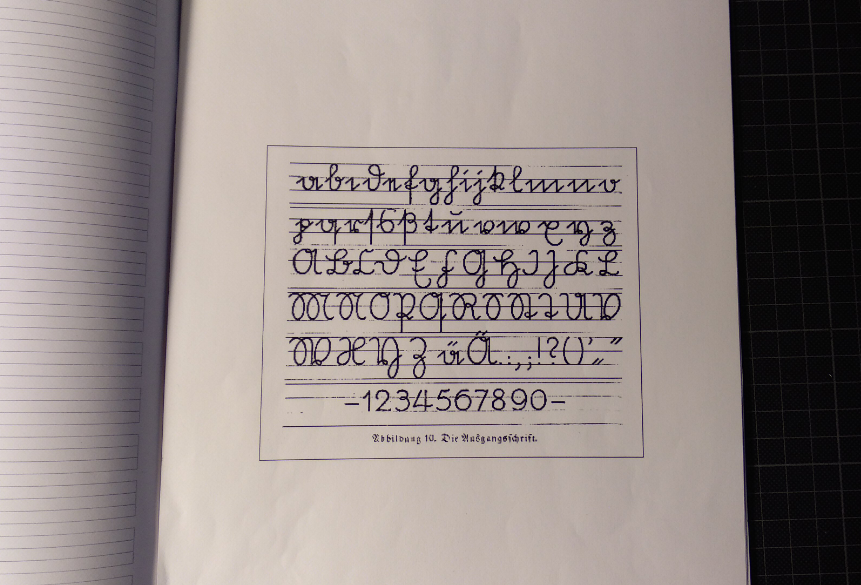 a b c d e f g h i j k l m n o
p q r ſ s ß t u v w x y z
A B C D E F G H I J K L
M N O P Q R S St T U V
W X Y Z ä Ä . : , ; ! ? ( ) ' „ “
–1234567890–
Abbildung 10. Die Ausgangsschrift.